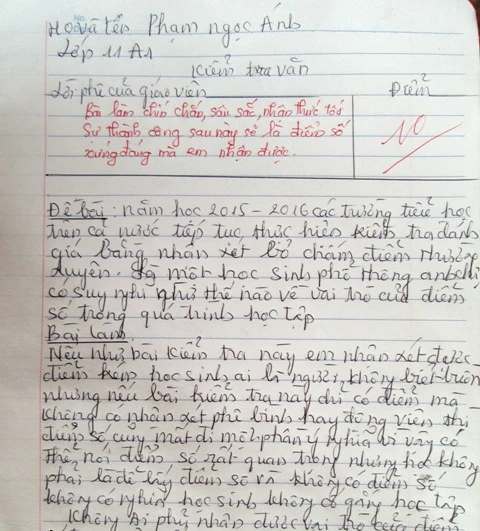 Họ và tên Phạm Ngọc Ánh
Lớp 11 A1
Kiểm tra văn
Lời phê của giáo viên Điểm
Bài làm chín chắn, sâu sắc, nhận thức tốt
Sự thành công sau này sẽ là điểm số
xứng đáng mà em nhận được.
Đề bài: năm học 2015 - 2016 các trường tiểu học
trên cả nước tiếp tục thực hiện kiểm tra đánh
giá bằng nhận xét bỏ chấm điểm thường
xuyên. Là một học sinh phổ thông anh chị
có suy nghĩ như thế nào về vai trò của điểm
số trong quá trình học tập
Bài làm.
Nếu như bài kiểm tra này em nhận xét được
điểm kém học sinh ai là người không biết buồn
nhưng nếu bài kiểm tra này chỉ có điểm mà
không có nhận xét phê bình hay động viên thì
điểm số cũng mất đi một phần ý nghĩa vì vậy có
thể nói điểm số rất quan trọng nhưng học không
phải là để lấy điểm số và không có điểm số
không có nghĩa học sinh không cố gắng học tập
Không ai phủ nhận được vai trò của điểm